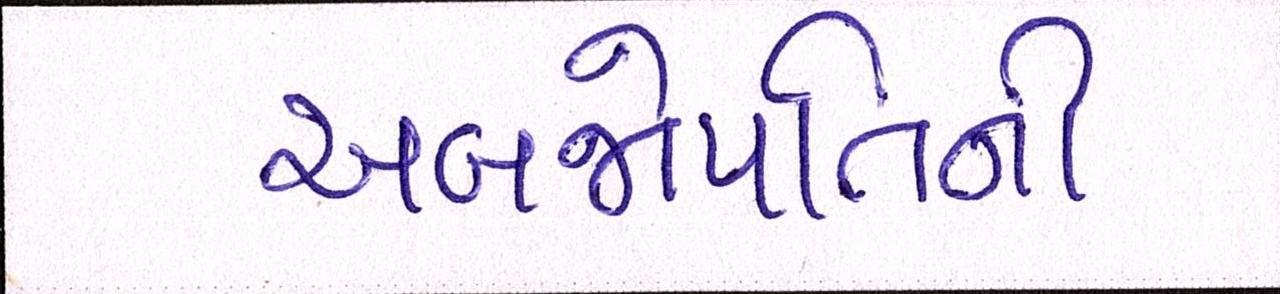 અબજોપતિની